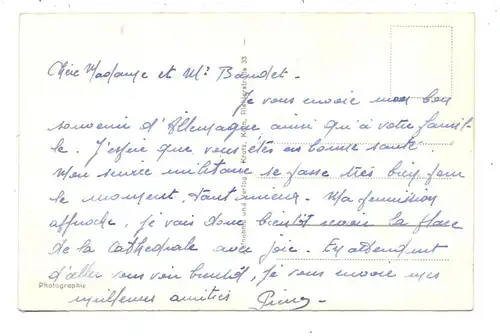 Chère Madame et Mr Baudet -
Je vous envoie mon bon
souvenir d'Allemagne, ainsi qu'à votre famil-
le. J'espère que vous êtes en bonne santé.
Mon service militaire se passe très bien pour
le moment, tant mieux. Ma permission
approche, je vais donc bientôt revoir la place
de la Cathédrale avec joie. En attendant
d'aller vous voir bientôt, je vous envoie mes
meilleures amitiés Pierre -
Photographie
Köln, Richterstraße 33